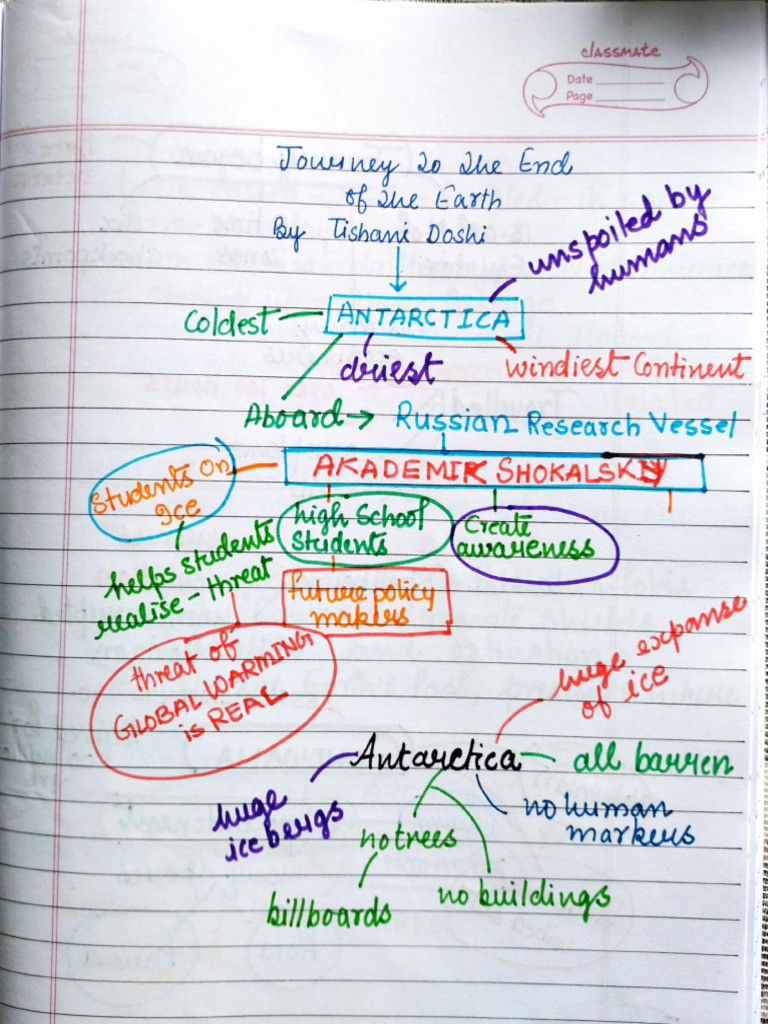 classmate
Date
Page
Journey to the End
of the Earth
By Tishani Doshi
unspoiled by
humans
ANTARCTICA
Coldest
driest
windiest Continent
Aboard → Russian Research Vessel
AKADEMIK SHOKALSKIY
Students On
Ice
high School
Students
Create
awareness
helps students
realise - threat
future policy
makers
threat of
GLOBAL WARMING
is REAL
huge expanse
of ice
Antarctica
all barren
huge
icebergs
no human
markers
no trees
no buildings
billboards